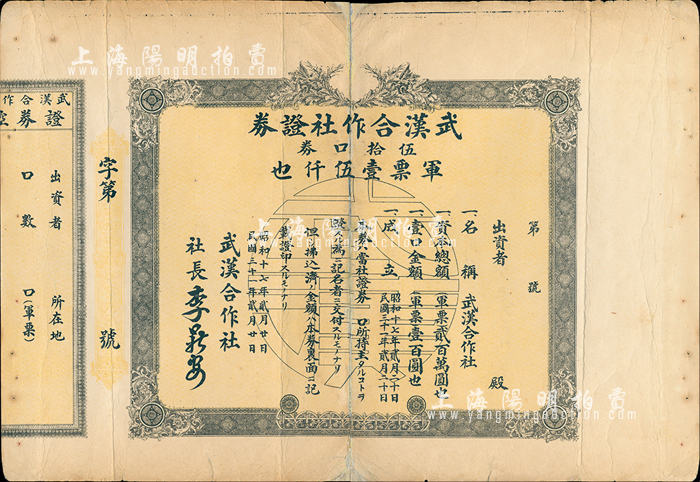 上海陽明拍賣
www.yangmingauction.com
武漢合作社證券
伍拾口券
軍票壹伍仟也
第 號
出資者 殿
一、名稱 武漢合作社
一、資本總額 軍票貳百萬圓也
一、壹口金額 軍票壹百圓也
一、成立 昭和十七年貳月二十日
民國三十一年貳月二十日
此券ハ當社證券 口所持主タルコトヲ
證スル為ニ記名者ニ交付スルモノナリ
但拂込濟ノ金額ハ本券裏面ニ記
載證印スルモノナリ
昭和十七年貳月廿日
民國三十一年貳月廿日
武漢合作社
社長 李
字第 號
武漢合作
證券
出資者 所在地
口數 口(軍票)
上海陽明拍賣
www.yangmingauction.com